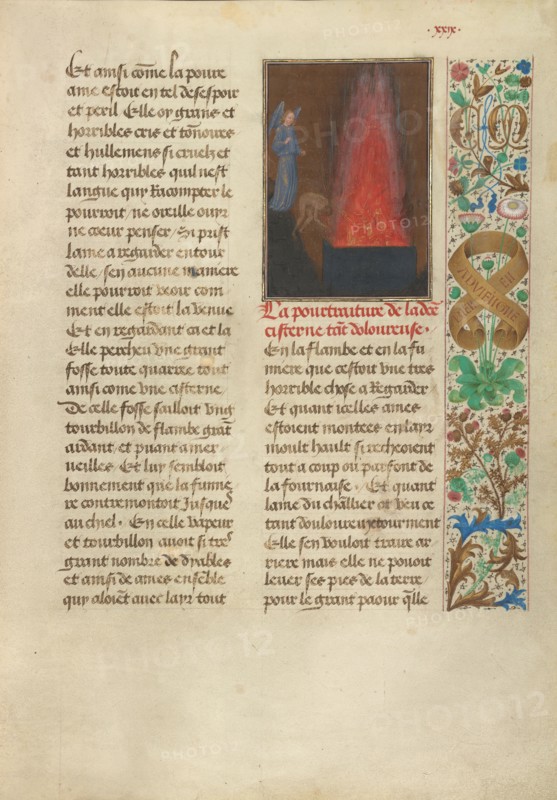 ·xxix·
Et ainsi cōme la poure
ame estoit en tel desespoir
et peril Elle oy grans et
horribles cris et tōnoires
et hullemens si cruelz et
tant horribles quil nest
langue quy Racompter le
pourroit / ne oreille ouir
ne coeur penser / Si prist
lame a regarder entour
delle / sen aucune maniere
elle pourroit veoir com
ment elle estoit la venue
Et en regardant ca et la
Elle percheu vne grant
fosse toute quarree tout
ainsi come vne cisterne /
De celle fosse sailloit vng
tourbillon de flambe grāt
ardant et puant a mer
ueilles Et luy sembloit
bonnement que la fumie
re contremontoit Jusques
au chiel · En celle vapeur
et tourbillon auoit si tres
grant nombre de dyables
et ainsi de ames ensēble
quy aloiēt auec layr tout
La pourtraiture de la dcē
cisterne tāt doloureuse ·
En la flambe et en la fu
miere que cestoit vne tres
horrible chose a Regarder
Et quant icelles ames
estoient montees en layr
moult hault si recheoient
tout a coup ou parfont de
la fournaise / Et quant
lame du chlier et veu ce
tant douloureux tourment
Elle sen vouloit traire ar
riere mais elle ne pouoit
leuer ses pies de la terre
pour le grant paour q̄lle
PHOTO12